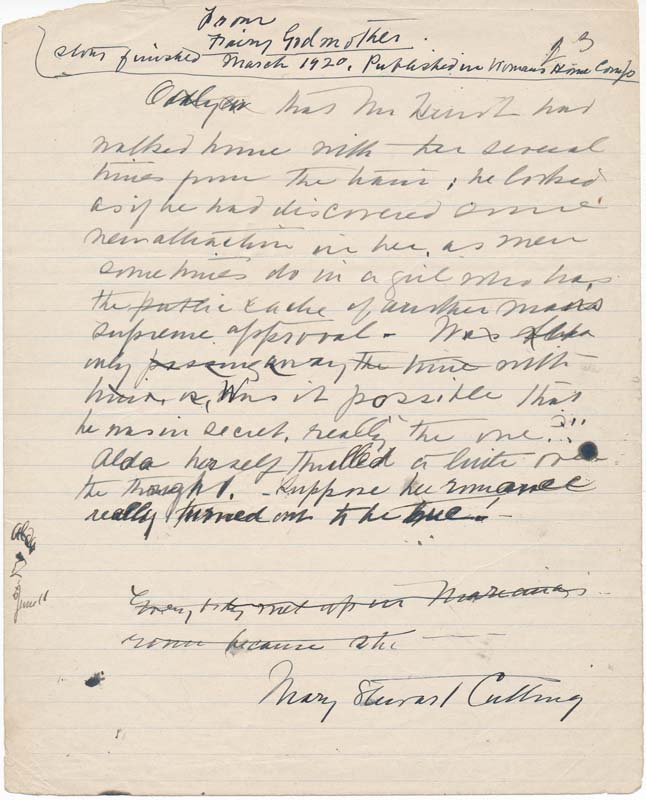 From
Fairy Godmother.
Story finished March 1920. Published in Woman's Home Comp
p 3
that Mr had
walked home with her several
times from the train; he looked
as if he had discovered some
new attraction in her, as men
sometimes do in a girl who has
the public cache of another man's
supreme approval - Was Alda
only passing away the time with
him, or, Was it possible that
he was in secret, really the one?!!
Alda herself thrilled a little over
the thought. - Suppose her romance
really turned out to be true! -
Alda
Everybody met up in Mariana's
room because she
Mary Stewart Cutting